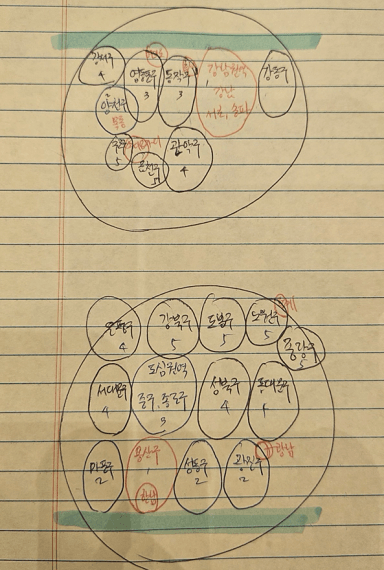 강서구
4
영등포구
3
동작구
3
강남권역
강남
서초, 송파
강동구
양천구
목동
구로
5
금천구
관악구
4
은평구
4
강북구
5
도봉구
5
노원구
5
중랑구
5
서대문구
4
도심권역
중구, 종로구
3
성북구
4
동대문구
마포구
2
용산구
한남
성동구
2
광진구
2
광남